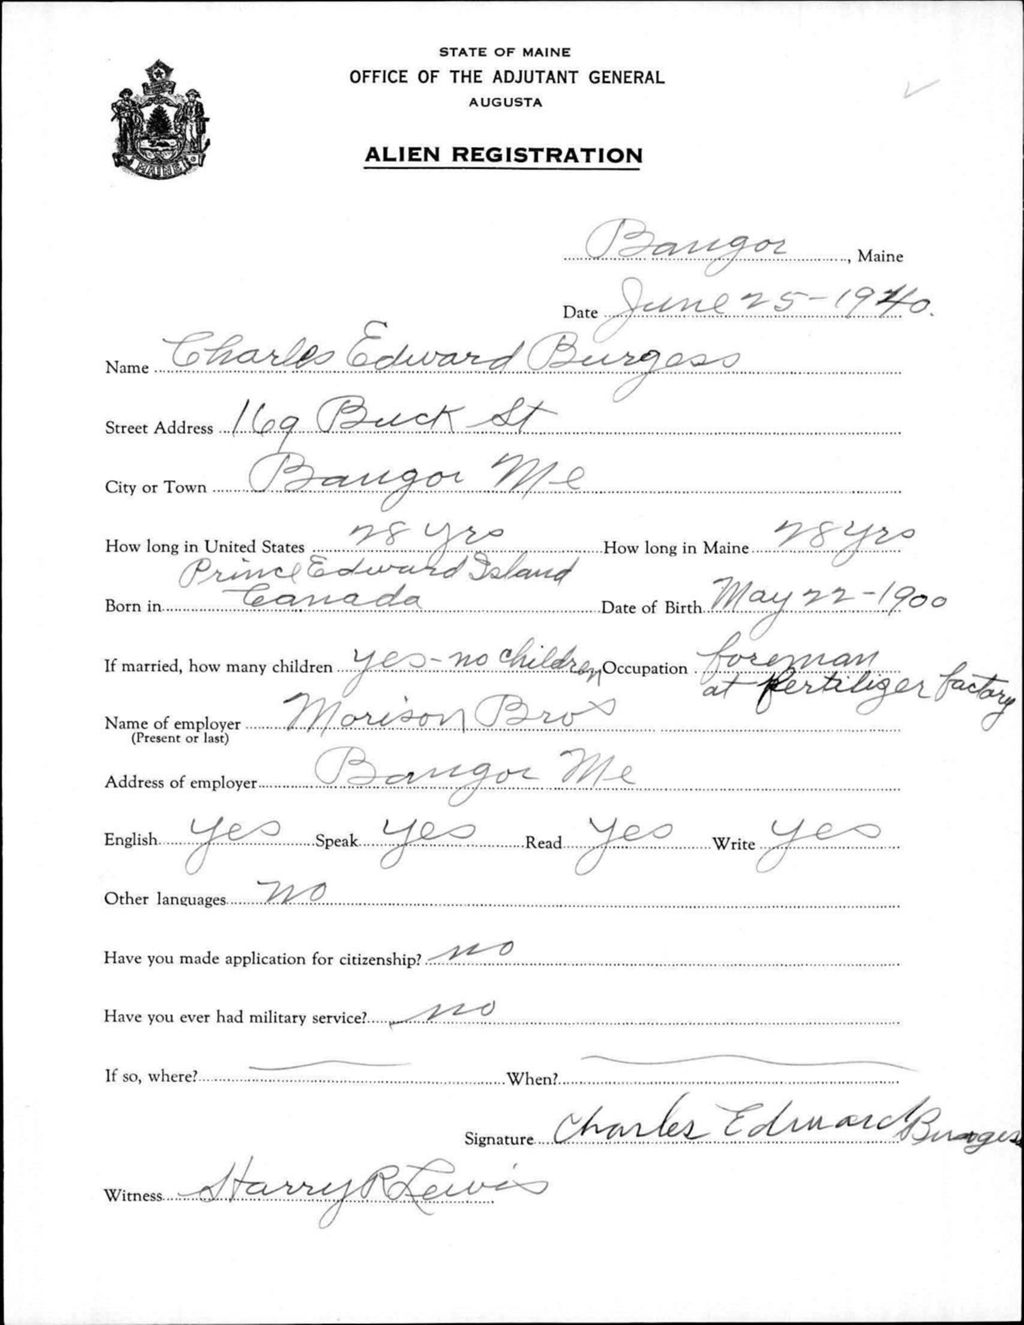 STATE OF MAINE
OFFICE OF THE ADJUTANT GENERAL
AUGUSTA
ALIEN REGISTRATION
MAINE
Bangor, Maine
Date June 25-1940.
Name Charles Edward Burgess
Street Address 169 Buck St
City or Town Bangor Me
How long in United States 28 yrs How long in Maine 28 yrs
Prince Edward Island
Born in Canada Date of Birth May 22-1900
If married, how many children yes-no children Occupation foreman
at fertilizer factory
Name of employer Morison Bros
(Present or last)
Address of employer Bangor Me
English yes Speak yes Read yes Write yes
Other languages no
Have you made application for citizenship? no
Have you ever had military service? no
If so, where? When?
Signature Charles Edward Burgess
Witness Harry R Lewis